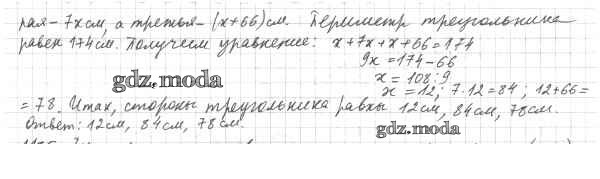 рая - 7х см, а третья - (х+66) см. Периметр треугольника
равен 174 см. Получаем уравнение: х+7х+х+66=174
9х=174-66
х = 108:9
gdz.moda
х = 12; 7·12=84; 12+66=
= 78. Итак, стороны треугольника равны 12 см, 84 см, 78 см.
Ответ: 12 см, 84 см, 78 см.
gdz.moda